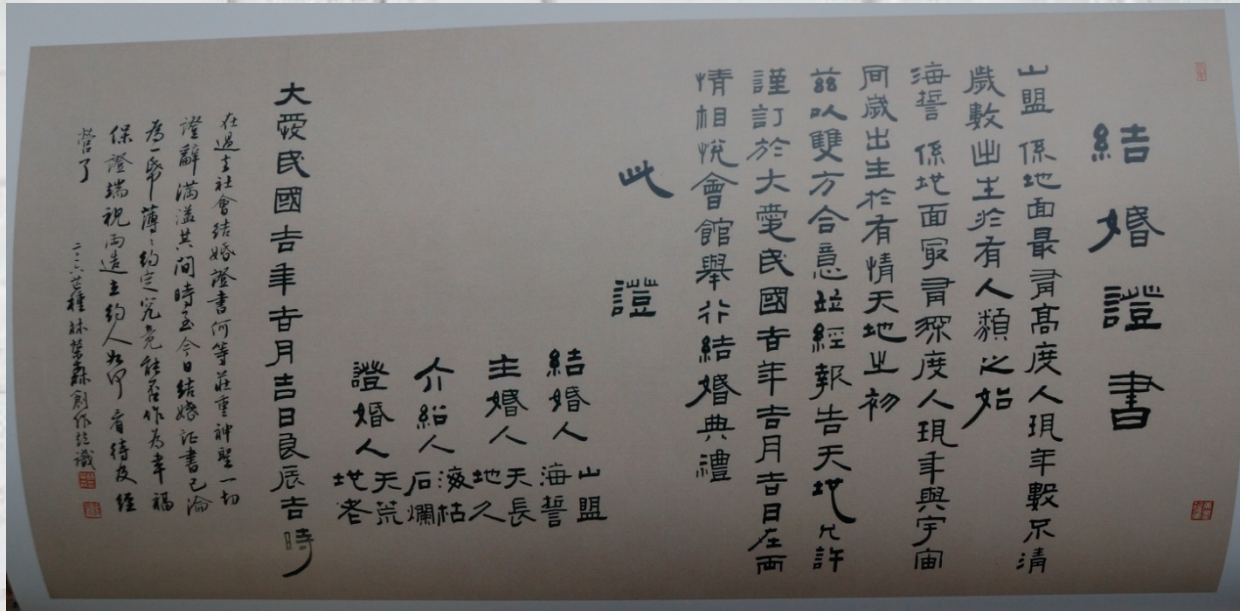 結婚證書
山盟 係地面最有高度人現年數不清
歲數出生於有人類之始
海誓 係地面最有深度人現年與宇宙
同歲出生於有情天地之初
茲以雙方合意並經報告天地允許
謹訂於大愛民國吉年吉月吉日在兩
情相悅會館舉行結婚典禮
此證
結婚人 山盟 海誓
主婚人 天長 地久
介紹人 海枯 石爛
證婚人 天荒 地老
大愛民國吉年吉月吉日良辰吉時
在過去社會結婚證書何等莊重神聖一切
證辭滿溢其間時至今日結婚証書已淪
為一帋薄薄約定究竟能否作為幸福
保證端視兩造主約人如何看待及經
營了
二〇〇六芒種林榮森創作並識